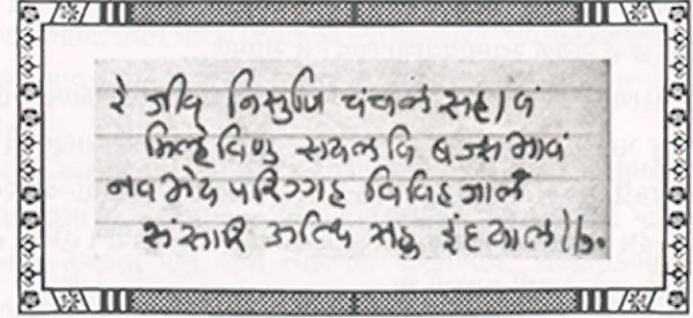 रे जीव निसुणि चंचल सहाव
मिल्हेविणु सयल वि बज्झ भाव
नवभेय परिग्गह विविह जाल
संसारि अत्थि सहु इंदयाल॥